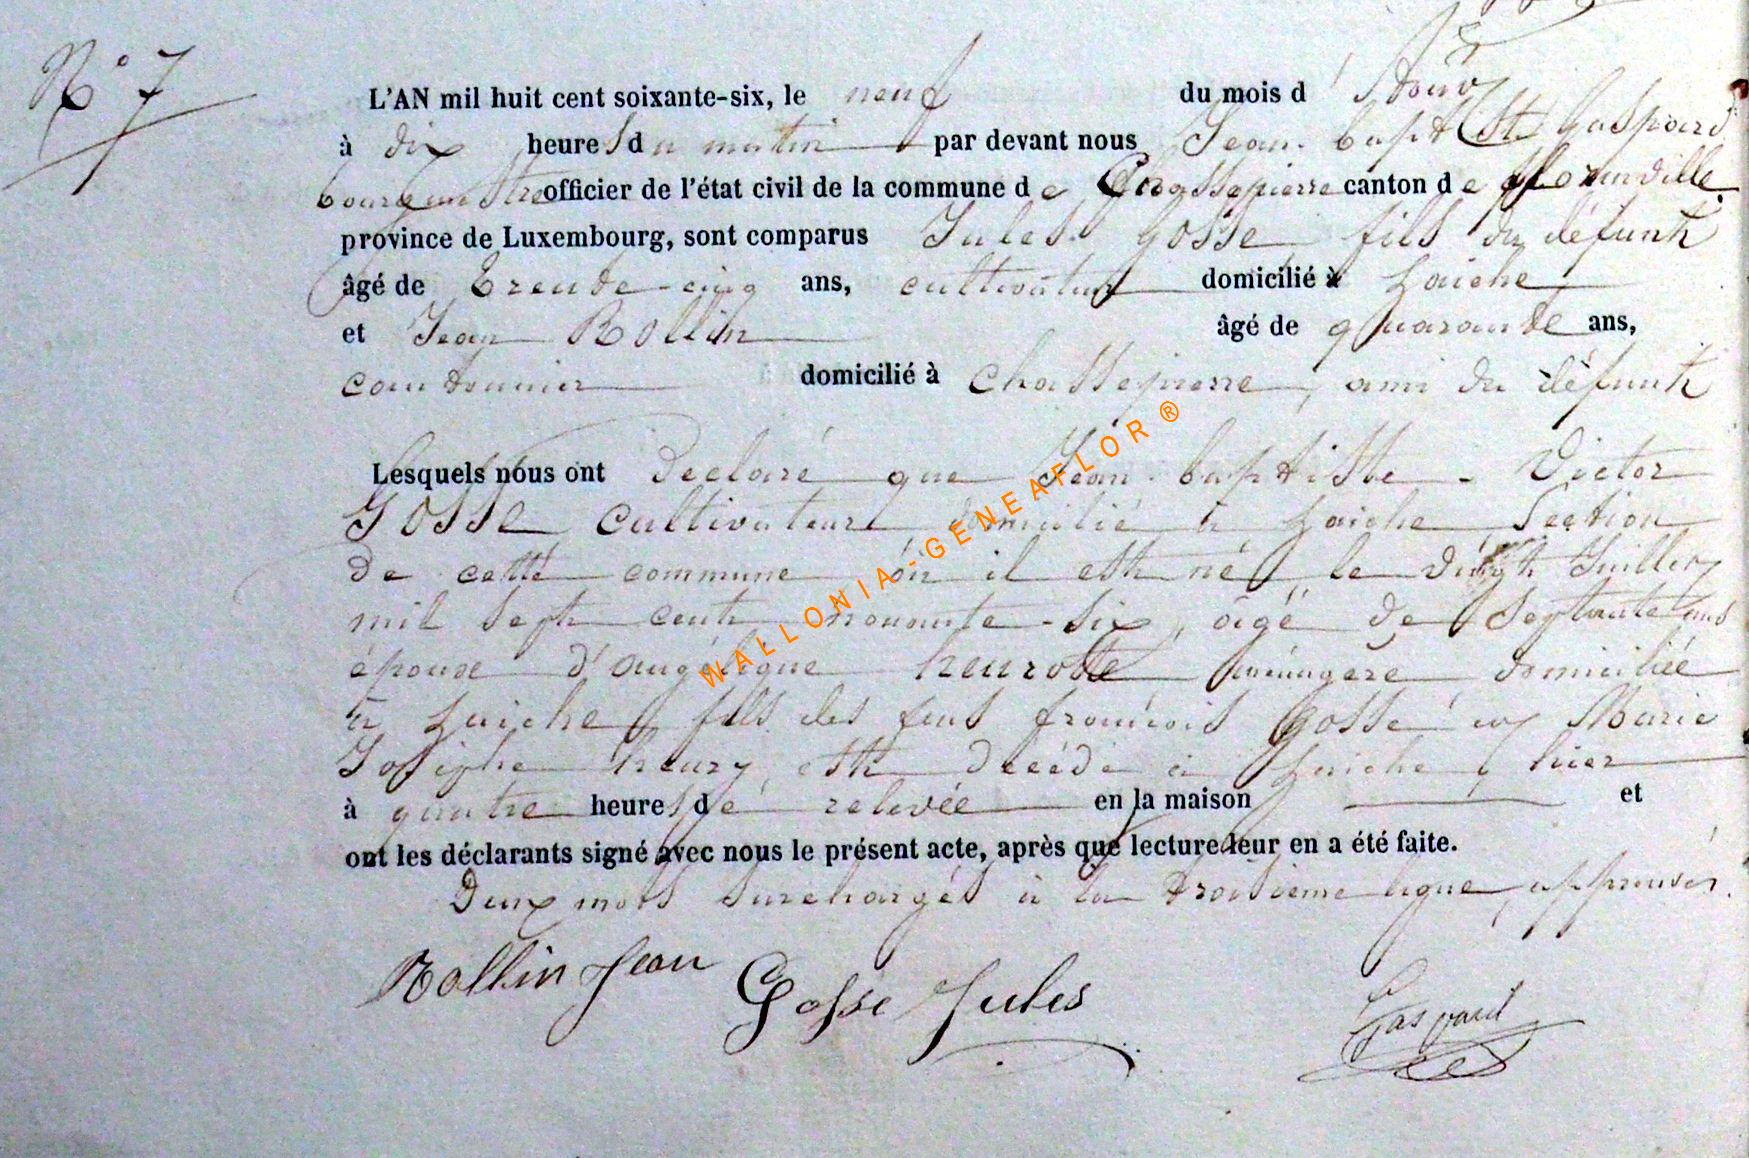 N° 7
L'AN mil huit cent soixante-six, le neuf du mois d' Aout
à dix heures du matin par devant nous Jean-baptste Gaspard
bourgmestre officier de l'état civil de la commune de Chassepierre canton de florenville
province de Luxembourg, sont comparus Jules Gosse fils du défunt
âgé de trente-cinq ans, cultivateur domicilié à Laiche
et Jean Rollin âgé de quarante ans,
cordonnier domicilié à Chassepierre, ami du défunt
Lesquels nous ont déclaré que Jean-baptiste-Victor
Gosse cultivateur domicilié à Laiche, Section
de cette commune où il est né, le vingt Juillet
mil sept cent nonante-six, âgé de septante ans
époux d'angélique henrotte ménagère domiciliée
à Laiche, fils des feus françois Gosse et Marie
Josèphe henry, est décédé à Laiche, hier
à quatre heures de relevée en la maison et
ont les déclarants signé avec nous le présent acte, après que lecture leur en a été faite.
Deux mots surchargés à la troisième ligne, approuvés.
Rollin Jean Gosse Jules Gaspard
WALLONIA-GENEAFLOR ®